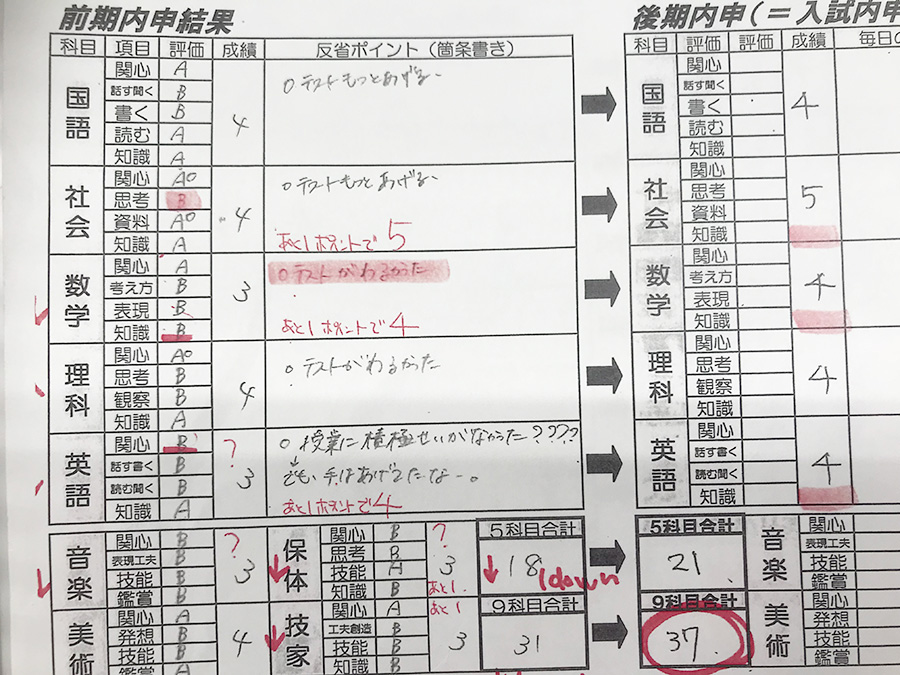 前期内申結果
科目 項目 評価 成績 反省ポイント（箇条書き）
国語 4 ○テストもっとあげる
関心 A
話す聞く B
書く B
読む A
知識 A
社会 4 ○テストもっとあげる
関心 A○
思考 B
資料 A○
知識 A
あと1ポイントで5
数学 3 ○テストがわるかった
関心 A
考え方 B
表現 B
知識 B
あと1ポイントで4
理科 4 ○テストがわるかった
関心 A○
思考 B
観察 B
知識 A
英語 ? 3 ○授業に積極せいがなかった????
でも、手はあげてたなー。
関心 B
話す書く B
読む聞く B
知識 A
あと1ポイントで4
音楽 ? 3
関心 B
表現工夫 B
技能 B
鑑賞 B
美術 4
関心 A
発想 B
技能 B
鑑賞
保体 ? 3
関心 B
思考 B
技能 A
知識 B
あと1
技家 3
関心 A
工夫創造 B
技能 B
知識 B
あと1
5科目合計
18
1down
9科目合計
31
後期内申（＝入試内申
科目 評価 評価 成績 毎日の
国語 4
関心
話す聞く
書く
読む
知識
社会 5
関心
思考
資料
知識
数学 4
関心
考え方
表現
知識
理科 4
関心
思考
観察
知識
英語 4
関心
話す書く
読む聞く
知識
5科目合計
21
9科目合計
37
音楽
関心
表現工夫
技能
鑑賞
美術
関心
発想
技能
鑑賞